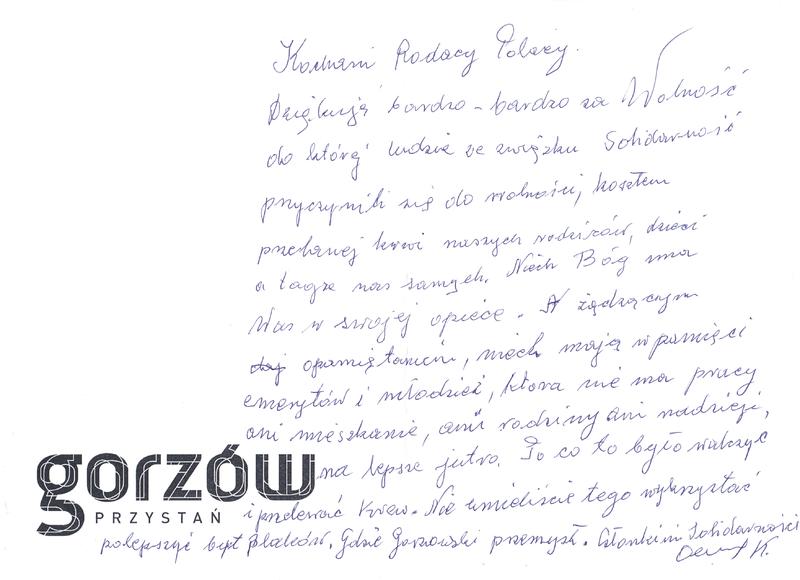 Kochani Rodacy Polacy.
Dziękuję bardzo - bardzo za Wolność
do której ludzie ze związku Solidarność
przyczynili się do wolności, kosztem
przelanej krwi naszych rodziców, dzieci
a także nas samych. Niech Bóg ma
Was w swojej opiece. A rządzącym
daj opamiętanie, niech mają w pamięci
emerytów i młodzież, która nie ma pracy
ani mieszkanie, ani rodziny ani nadzieji,
na lepsze jutro. Po co to było walczyć
i przelewać krew. Nie umieliście tego wykrzystać
polepszyć byt Polaków. Gdzie Gorzowski przemysł. Członkini Solidarności
K.
gorzów
PRZYSTAŃ